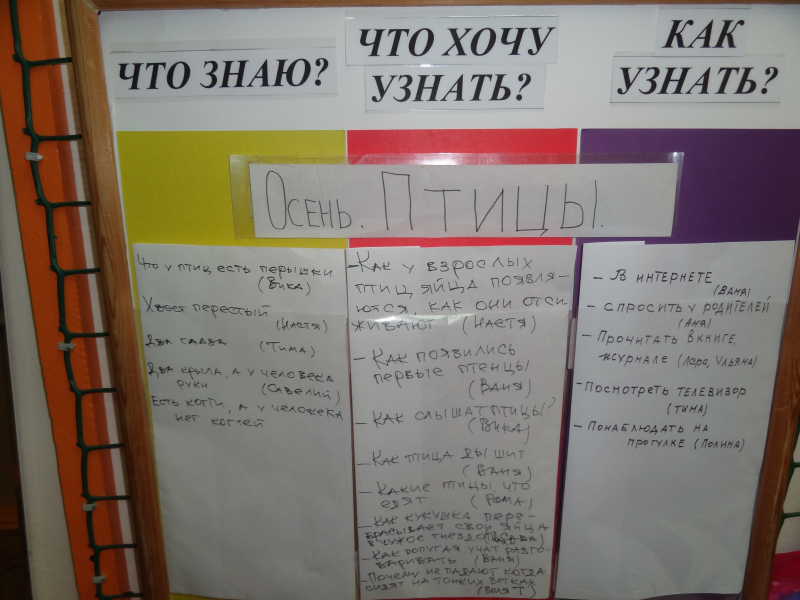 ЧТО ЗНАЮ?
ЧТО ХОЧУ
УЗНАТЬ?
КАК
УЗНАТЬ?
Осень. Птицы.
Что у птиц есть перышки
(Вика)
Хвост перестый
(Настя)
Два глаза (Тима)
Два крыла, а у человека
руки (Савелий)
Есть когти, а у человека
нет когтей
- Как у взрослых
птиц яйца появля-
ются, как они отси
живают (Настя)
- Как появились
первые птенцы
(Ваня)
- Как слышат птицы?
(Вика)
- Как птица дышит
(Ваня)
- Какие птицы что
едят (Рома)
- Как кукушка пере-
брасывает свои яйца
в чужое гнездо
- Как попугая учат разго-
варивать (Ваня)
- Почему не падают когда
сидят на тонких ветках
(Поля Т)
- В интернете
(Ваня)
- спросить у родителей
(Аня)
- Прочитать в книге,
журнале (Лера, Ульяна)
- Посмотреть телевизор
(тима)
- Понаблюдать на
прогулке (Полина)